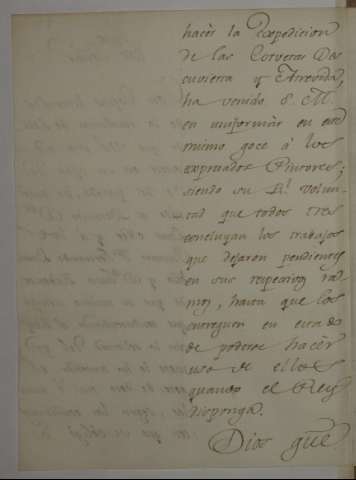 hacer la Expedicion
de las Corvetas Des
cuvierta y Atrevida,
ha venido S. M.
en uniformar en este
mismo goce à los
expresados Pintores;
siendo su Rl. volun-
tad que todos tres
concluyan los trabajos
que dejaron pendientes
en sus respectivos ra-
mos, hasta que los
entreguen en estado
de poderse hacer
uso de ellos
quando el Rey
disponga.
Dios gue